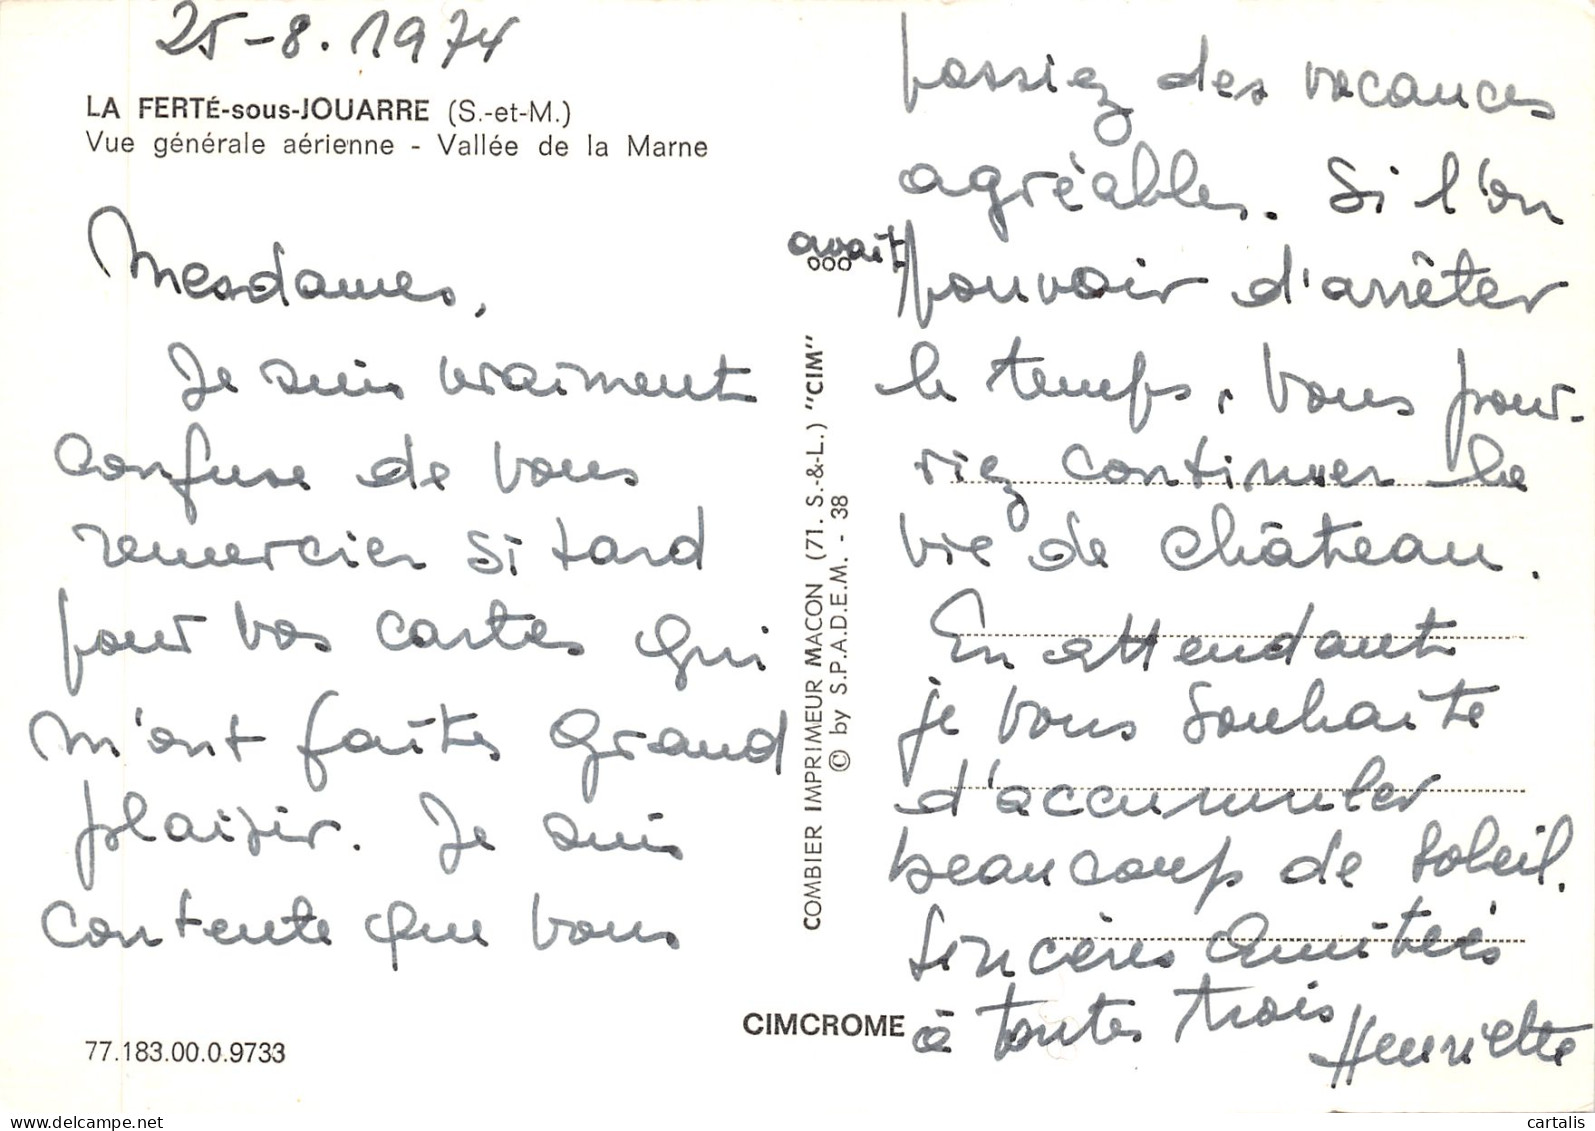 25-8.1974
LA FERTÉ-sous-JOUARRE (S.-et-M.)
Vue générale aérienne - Vallée de la Marne
Mesdames,
Je suis vraiment
confuse de vous
remercier si tard
pour vos cartes qui
m'ont faites grand
plaisir. Je suis
contente que vous
77.183.00.0.9733
COMBIER IMPRIMEUR MACON (71. S.-&-L.) "CIM"
© by S.P.A.D.E.M. - 38
CIMCROME
passiez des vacances
agréables. Si l'on
avait pouvoir d'arrêter
le temps, vous pour-
riez continuer la
vie de château.
En attendant
je vous souhaite
d'accumuler
beaucoup de soleil.
Sincères amitiés
à toutes trois
Henriette
delcampe.net
cartalis